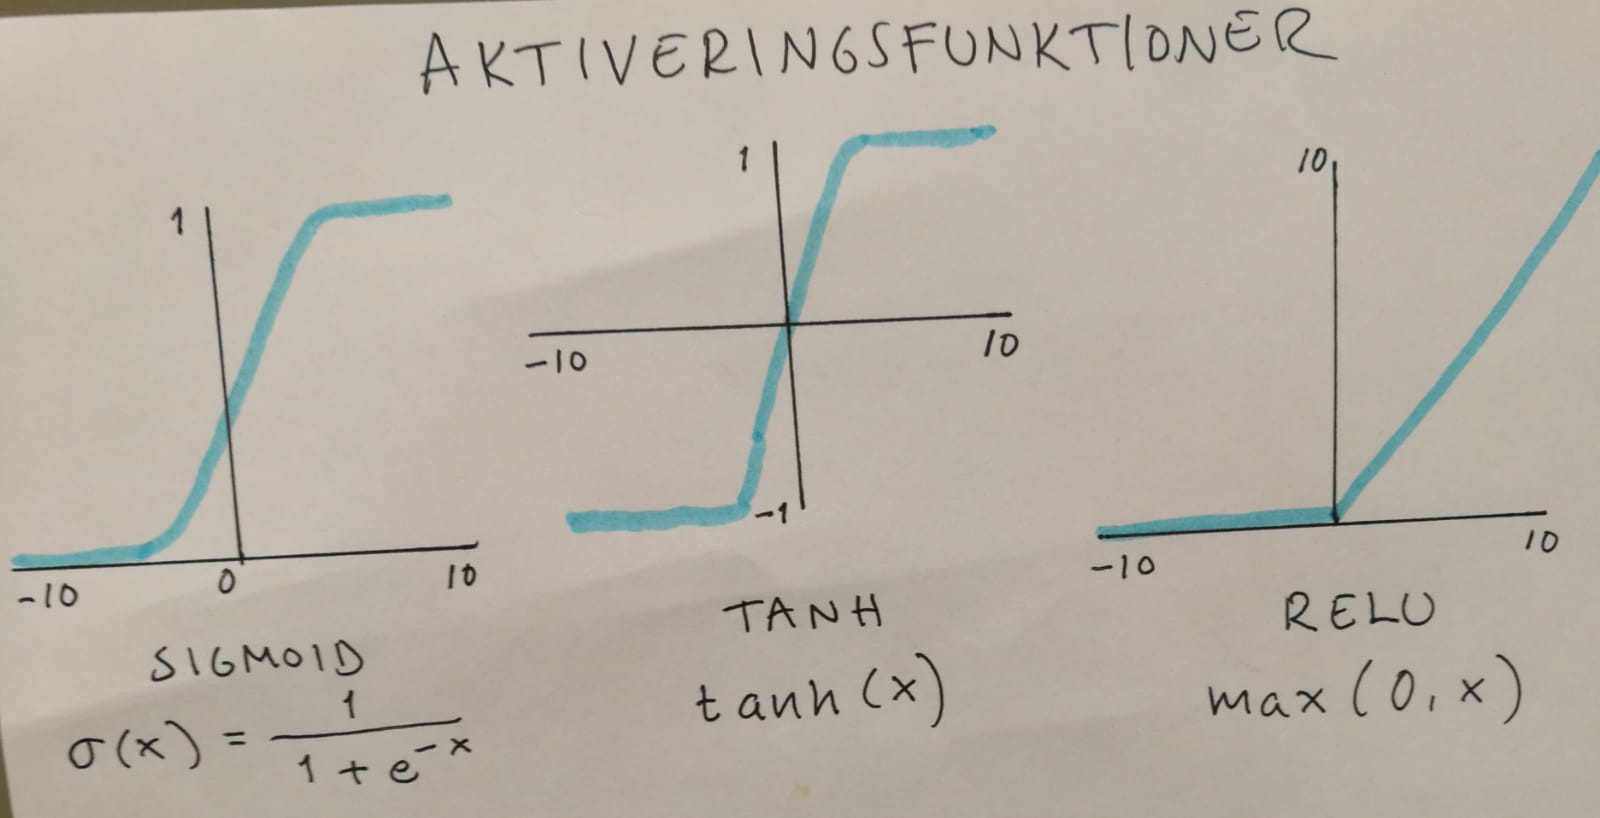 AKTIVERINGSFUNKTIONER
1
-10 0 10
SIGMOID
σ(x) = 1 / (1 + e^-x)
1
-10 10
-1
TANH
tanh(x)
10
-10 10
RELU
max(0, x)